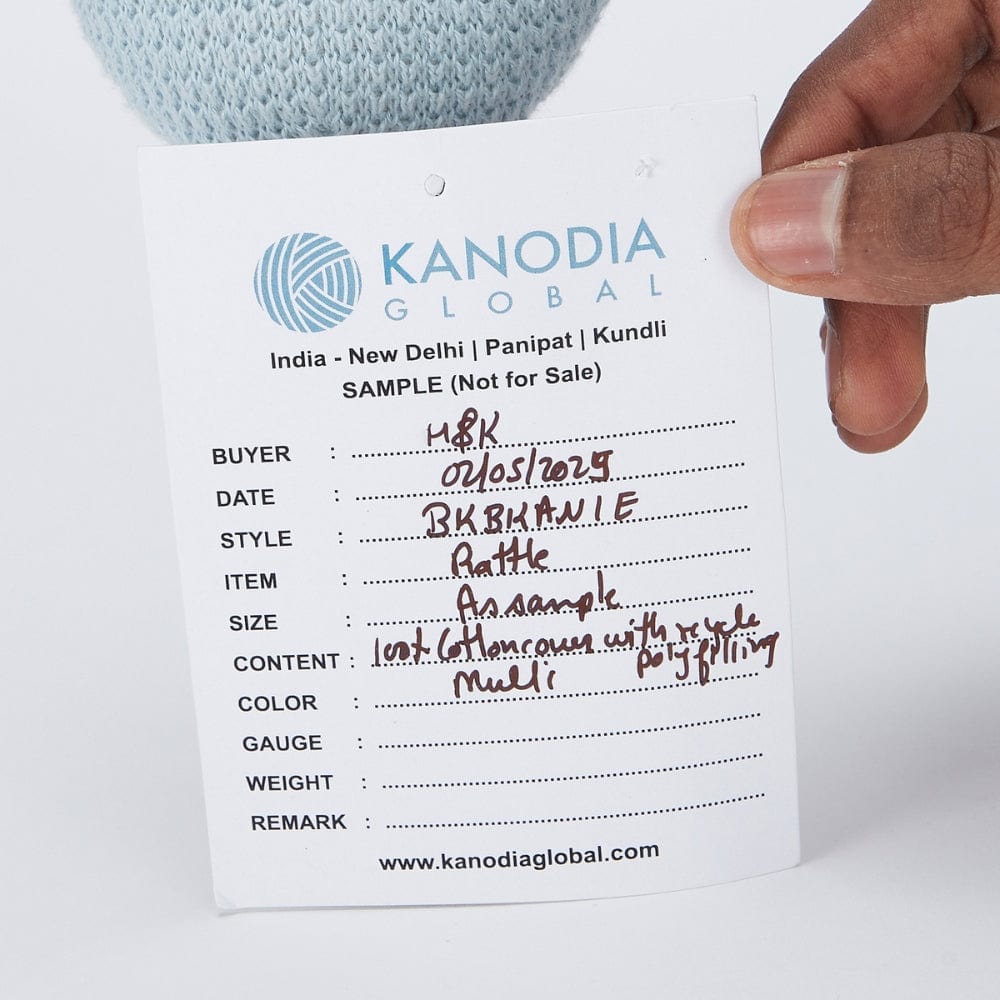 KANODIA
GLOBAL
India - New Delhi | Panipat | Kundli
SAMPLE (Not for Sale)
BUYER : H&K
DATE : 02/05/2025
STYLE : BKBKANIE
ITEM : Rattle
SIZE : As sample
CONTENT : 100% Cotton cover with recycle
polyfilling
COLOR : Multi
GAUGE :
WEIGHT :
REMARK :
www.kanodiaglobal.com